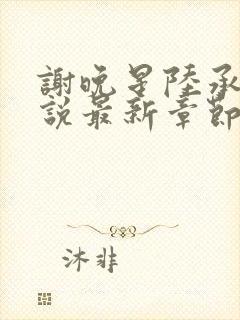 謝晚星陸承
說最新章節
沐非